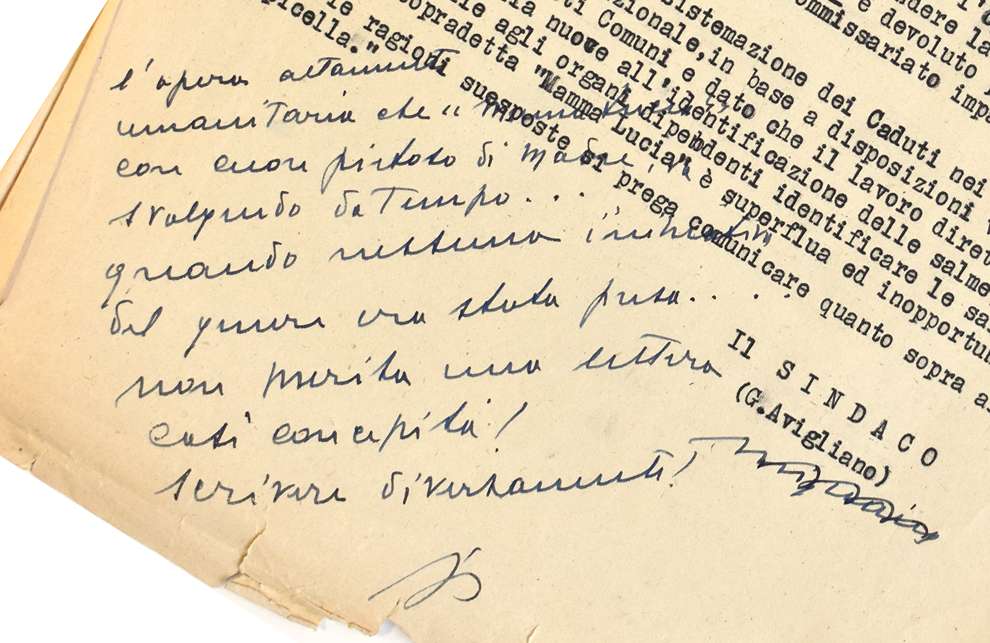 endere la
è devoluto
ommissariato impa
sistemazione dei Caduti nei
zionale, in base a disposizioni
ti Comuni e dato che il lavoro diret
nuove all'identificazione delle salme
le agli organi dipendenti identificare le sal
sopradetta "Mamma Lucia", è superflua ed inopportu
picella."
le ragioni suesposte si prega comunicare quanto sopra a
Il SINDACO
(G.Avigliano)
l'opera altamente
umanitaria che "Mamma Lucia"
con cuore pietoso di Madre, va
svolgendo da tempo...
quando nessuna iniziativa
del genere era stata presa....
non merita una lettera
così concepita!
Scrivere diversamente!